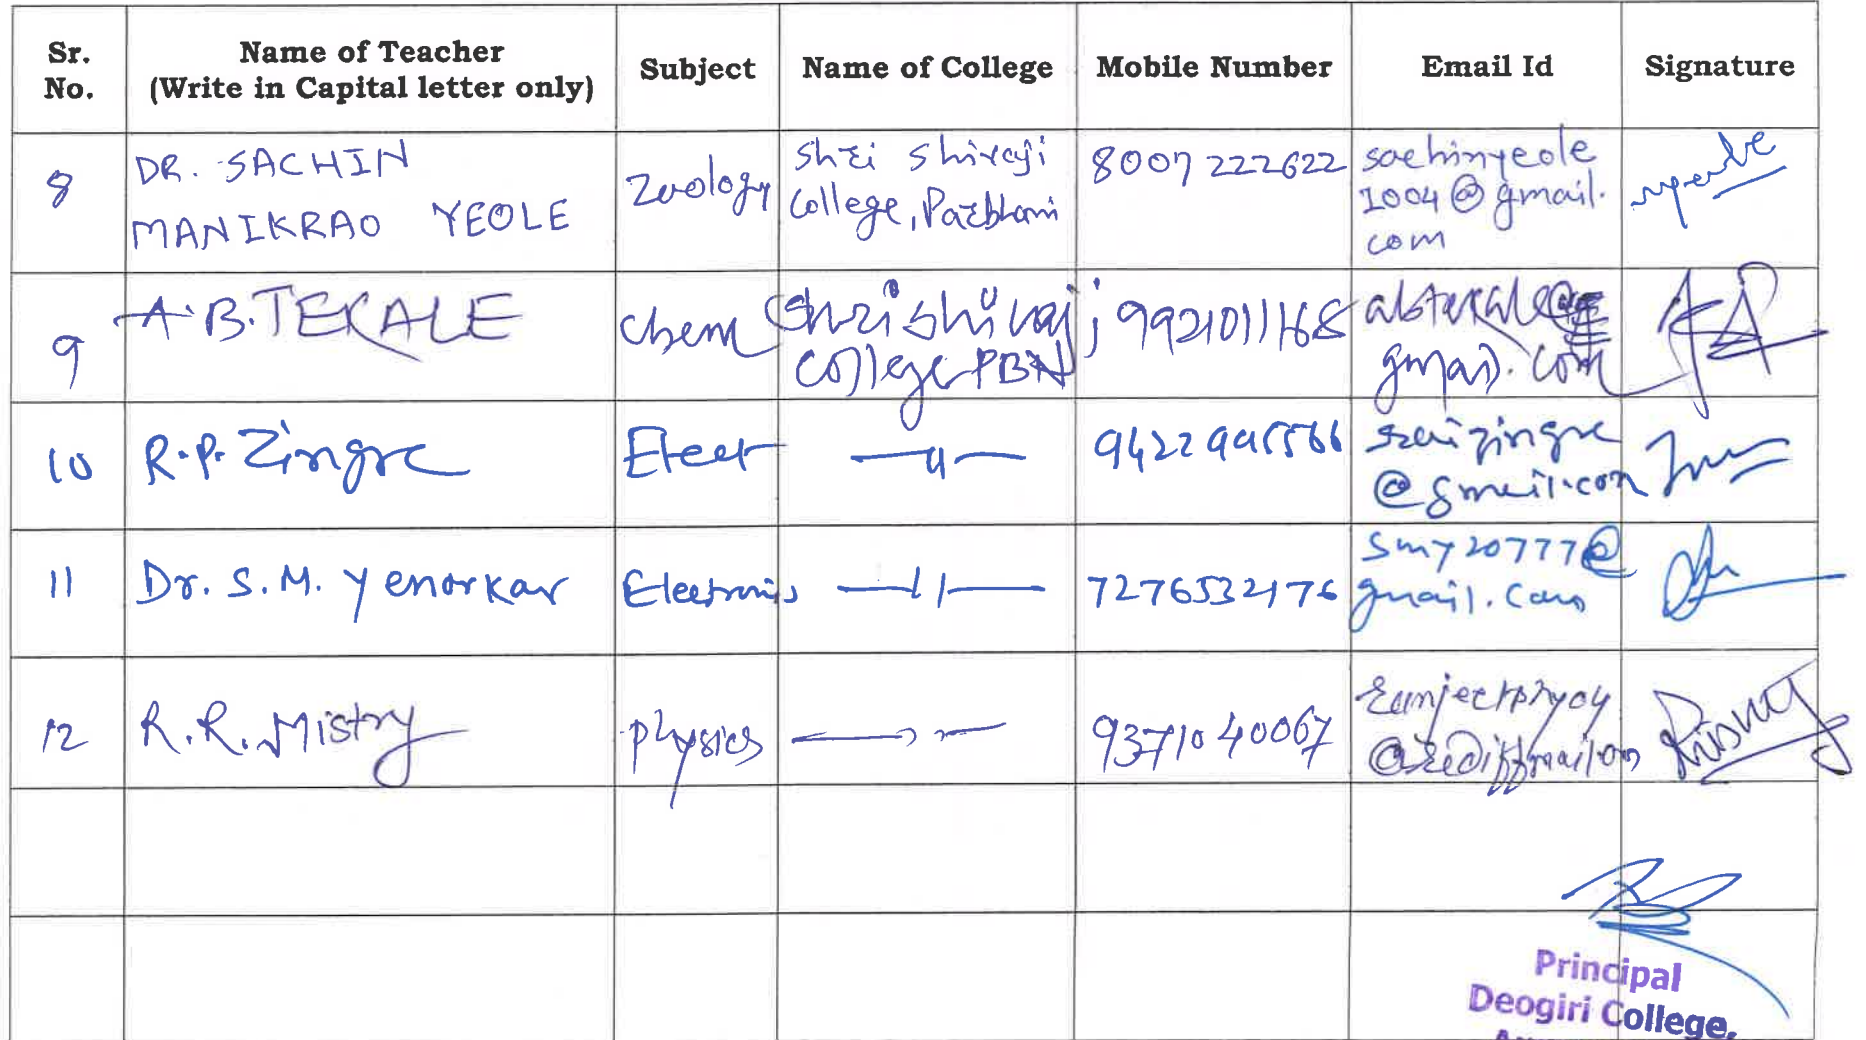 Sr. No. Name of Teacher (Write in Capital letter only) Subject Name of College Mobile Number Email Id Signature
8 DR. SACHIN MANIKRAO YEOLE Zoology Shri Shivaji College, Parbhani 8007222622 sachinyeole1004@gmail.com
9 A.B. TEKALE Chem Shri Shivaji College PBN 9921011168 abtekale@gmail.com
10 R.P. Zingre Elect —〃— 9422995566 @gmail.com
11 Dr. S.M. Yenorkar Electronics —〃— 7276532176 smy20777@gmail.com
12 R.R. Mistry Physics —〃— 9371040067 @rediffmail.com
Principal
Deogiri College,